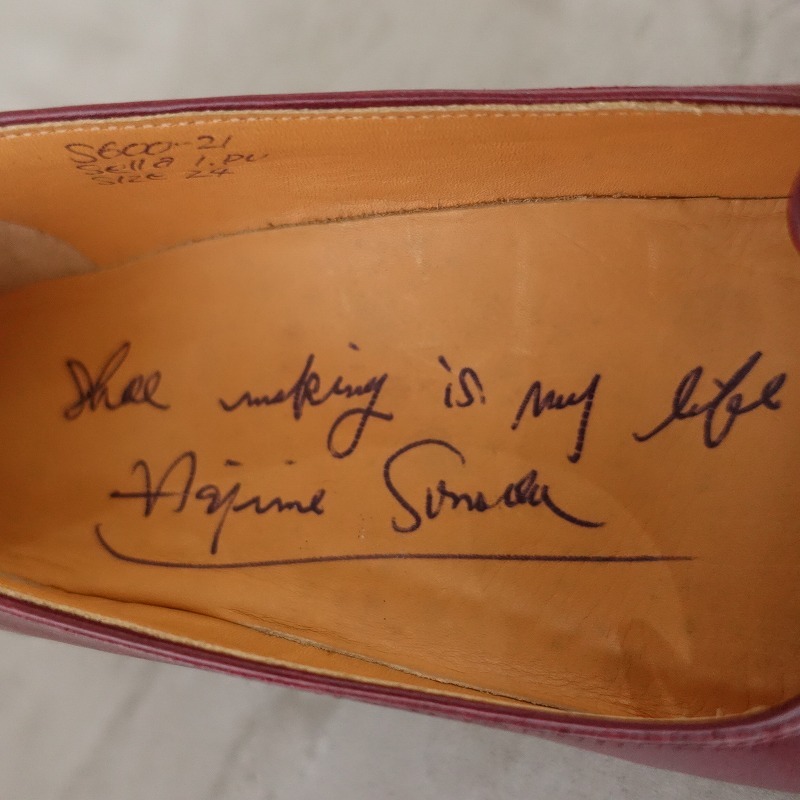 S600-21
Sella 1.DU
SIZE 24
Shoe making is my life
Hajime Sonoda